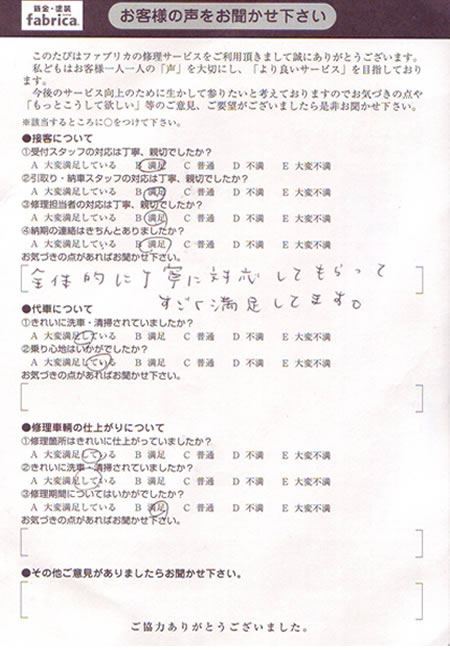 鈑金・塗装
fabrica.
お客様の声をお聞かせ下さい
このたびはファブリカの修理サービスをご利用頂きまして誠にありがとうございます。
私どもはお客様一人一人の「声」を大切にし、「より良いサービス」を目指しており
ます。
今後のサービス向上のために生かして参りたいと考えておりますのでお気づきの点や
「もっとこうして欲しい」等のご意見、ご要望がございましたら是非お聞かせ下さい。
※該当するところに○をつけて下さい。
●接客について
①受付スタッフの対応は丁寧、親切でしたか？
A 大変満足している B 満足 C 普通 D 不満 E 大変不満
②引取り・納車スタッフの対応は丁寧、親切でしたか？
A 大変満足している B 満足 C 普通 D 不満 E 大変不満
③修理担当者の対応は丁寧、親切でしたか？
A 大変満足している B 満足 C 普通 D 不満 E 大変不満
④納期の連絡はきちんとありましたか？
A 大変満足している B 満足 C 普通 D 不満 E 大変不満
お気づきの点があればお聞かせ下さい。
全体的に丁寧に対応してもらって
すごく満足してます。
●代車について
①きれいに洗車・清掃されていましたか？
A 大変満足している B 満足 C 普通 D 不満 E 大変不満
②乗り心地はいかがでしたか？
A 大変満足している B 満足 C 普通 D 不満 E 大変不満
お気づきの点があればお聞かせ下さい。
●修理車輌の仕上がりについて
①修理箇所はきれいに仕上がっていましたか？
A 大変満足している B 満足 C 普通 D 不満 E 大変不満
②きれいに洗車・清掃されていましたか？
A 大変満足している B 満足 C 普通 D 不満 E 大変不満
③修理期間についてはいかがでしたか？
A 大変満足している B 満足 C 普通 D 不満 E 大変不満
お気づきの点があればお聞かせ下さい。
●その他ご意見がありましたらお聞かせ下さい。
ご協力ありがとうございました。